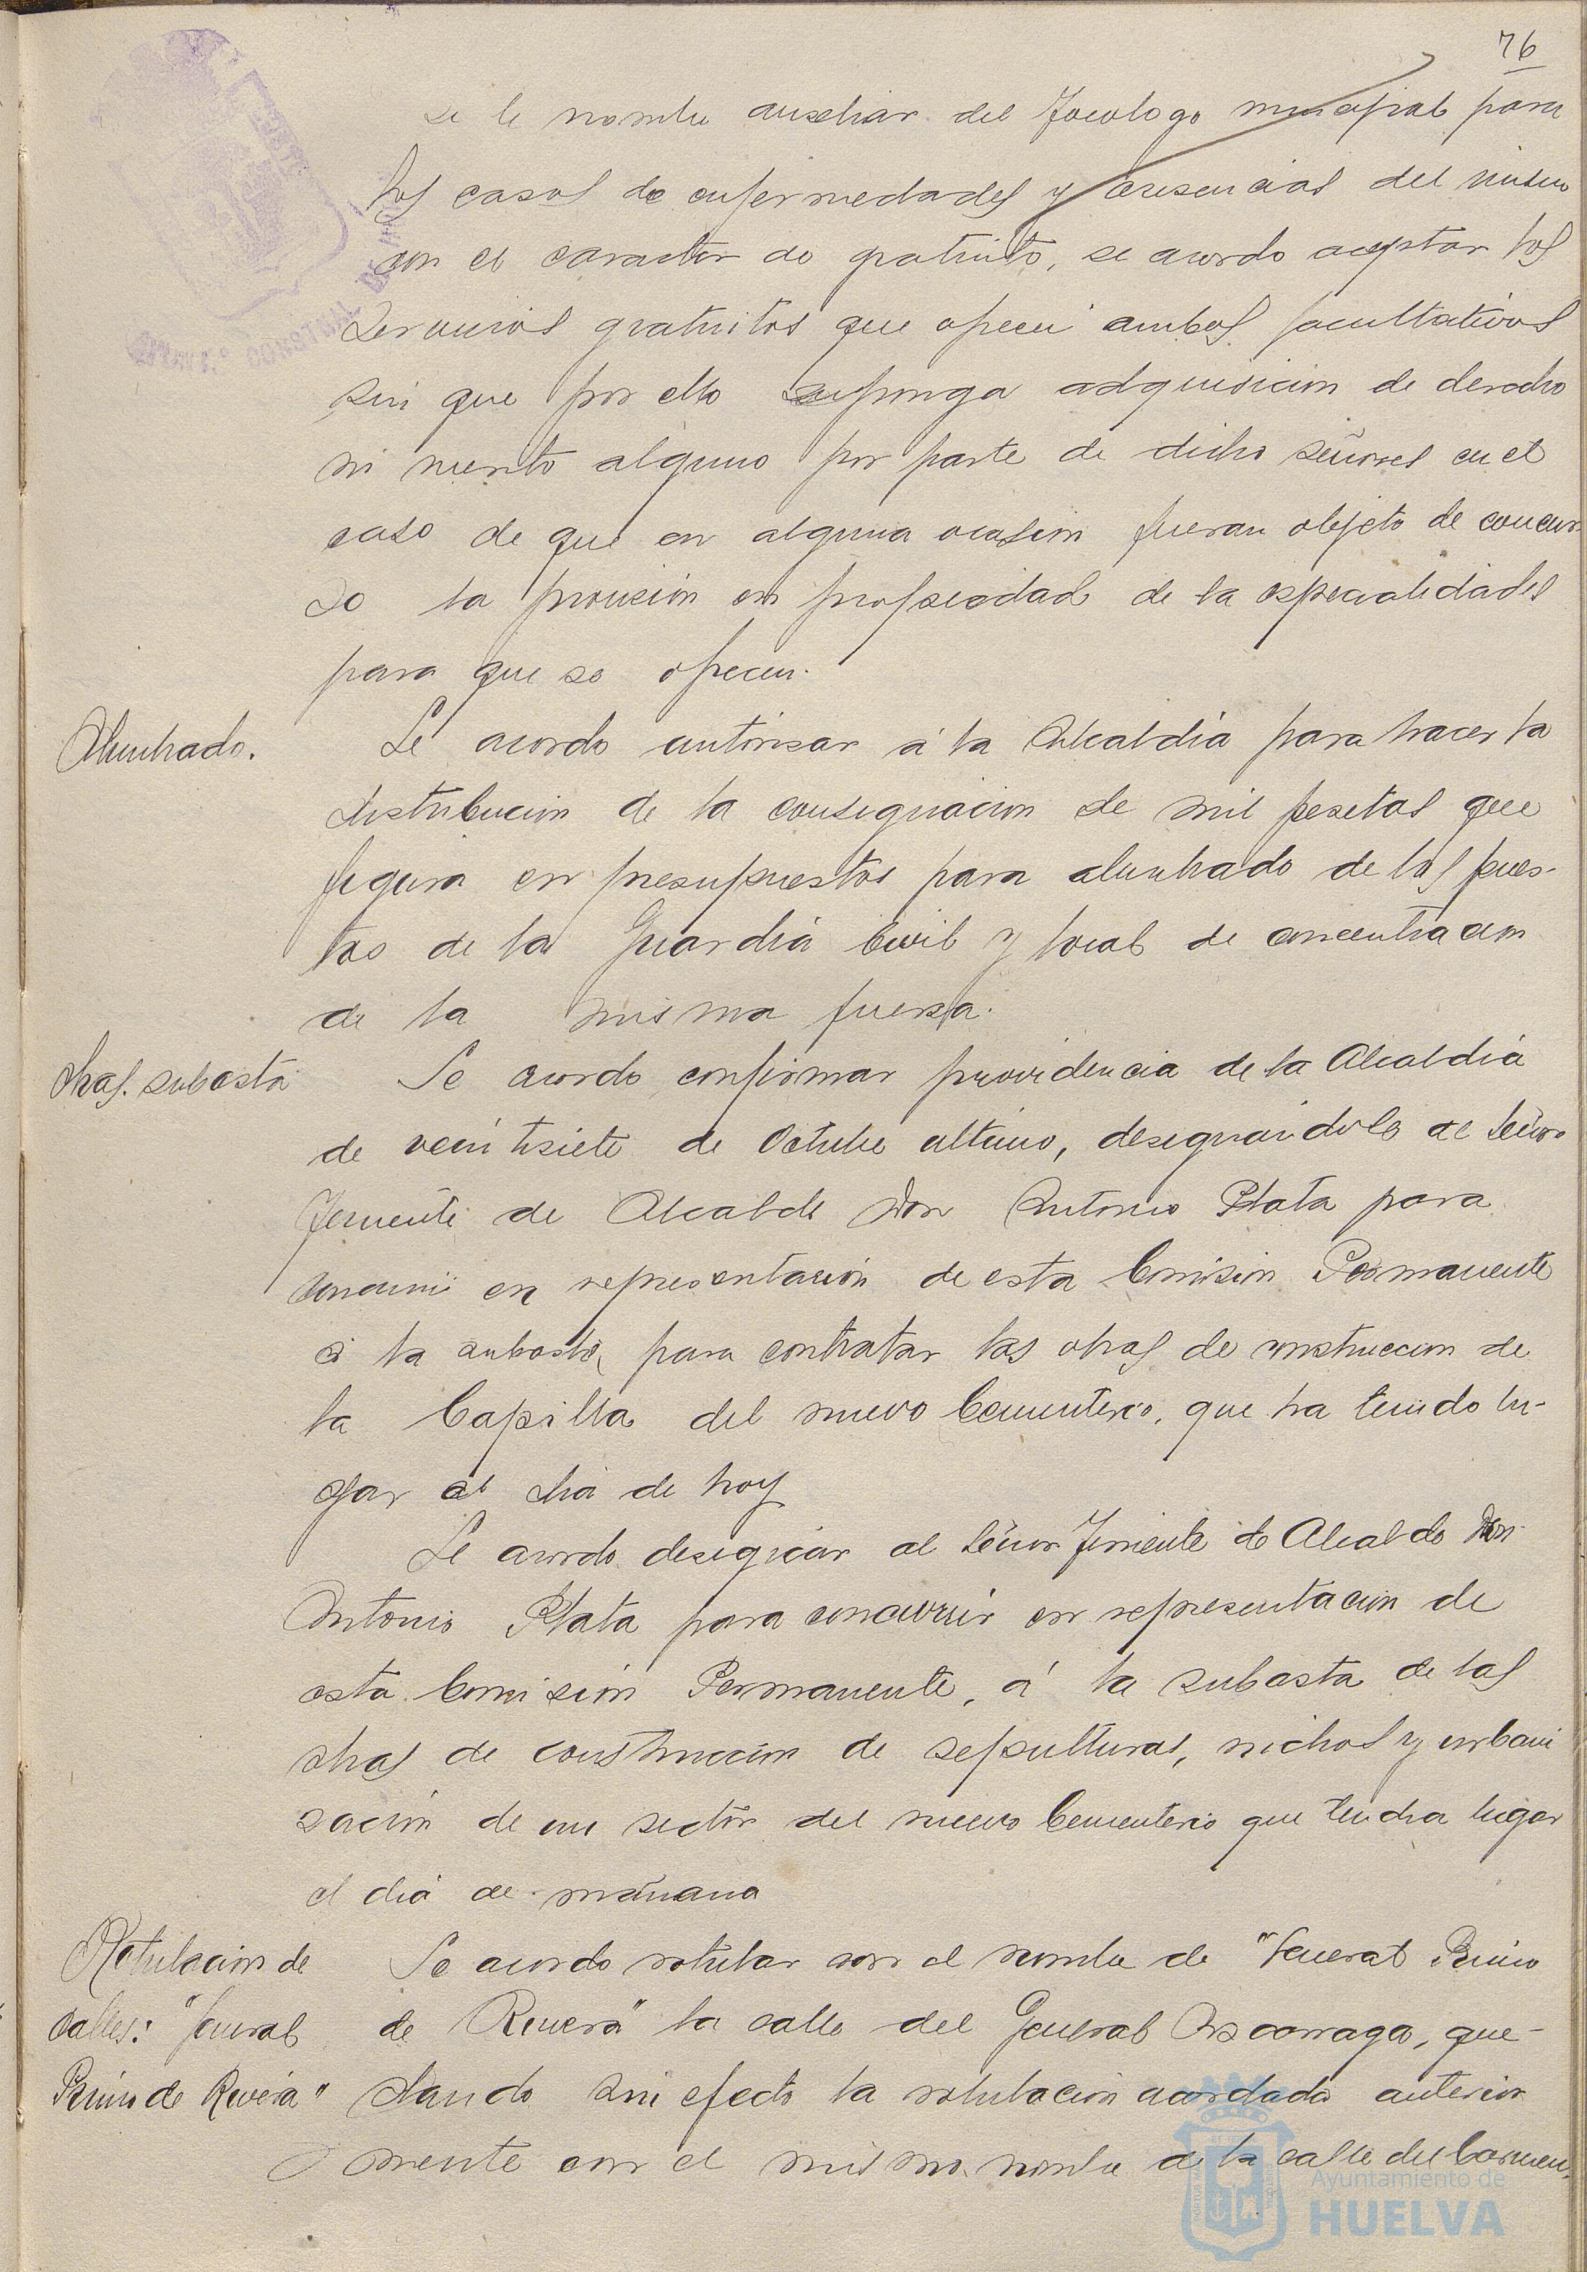 76
se le nombre auxiliar del Tocologo municipal para
los casos de enfermedades y ausencias del mismo
con el caracter de gratuito, se acordo aceptar los
servicios gratuitos que ofrecen ambos facultativos
sin que por ello suponga adquisicion de derecho
ni merito alguno por parte de dicho señores en el
caso de que en alguna ocasion fueran objeto de concur
so la provision en propiedad de la especialidades
para que se ofrecen.
Alumbrado.
Se acordo autorizar á la Alcaldia para hacer la
distribucion de la consignacion de mil pesetas que
figura en presupuestos para alumbrado de los pues-
tos de la Guardia Civil y local de concentracion
de la misma fuerza.
Obras. subasta
Se acordo confirmar providencia de la Alcaldia
de veintisiete de Octubre ultimo, designandole al Señor
Teniente de Alcalde Don Antonio Plata para
concurrir en representación de esta Comision Permanente
á la subasta para contratar las obras de construccion de
la Capilla del nuevo Cementerio, que ha tenido lu-
gar el dia de hoy
Se acordo designar al Señor Teniente de Alcalde Don
Antonio Plata para concurrir en representacion de
esta Comision Permanente, á la subasta de las
obras de construccion de sepulturas, nichos y urbani
zación de un sector del nuevo Cementerio que tendra lugar
el dia de mañana
Rotulacion de
calles: "General
Primo de Rivera"
Se acordo rotular con el nombre de "General Primo
de Rivera" la calle del General Azcarraga, que-
dando sin efecto la rotulacion acordada anterior
mente con el mismo nombre de la calle del Carmen.
Ayuntamiento de
HUELVA